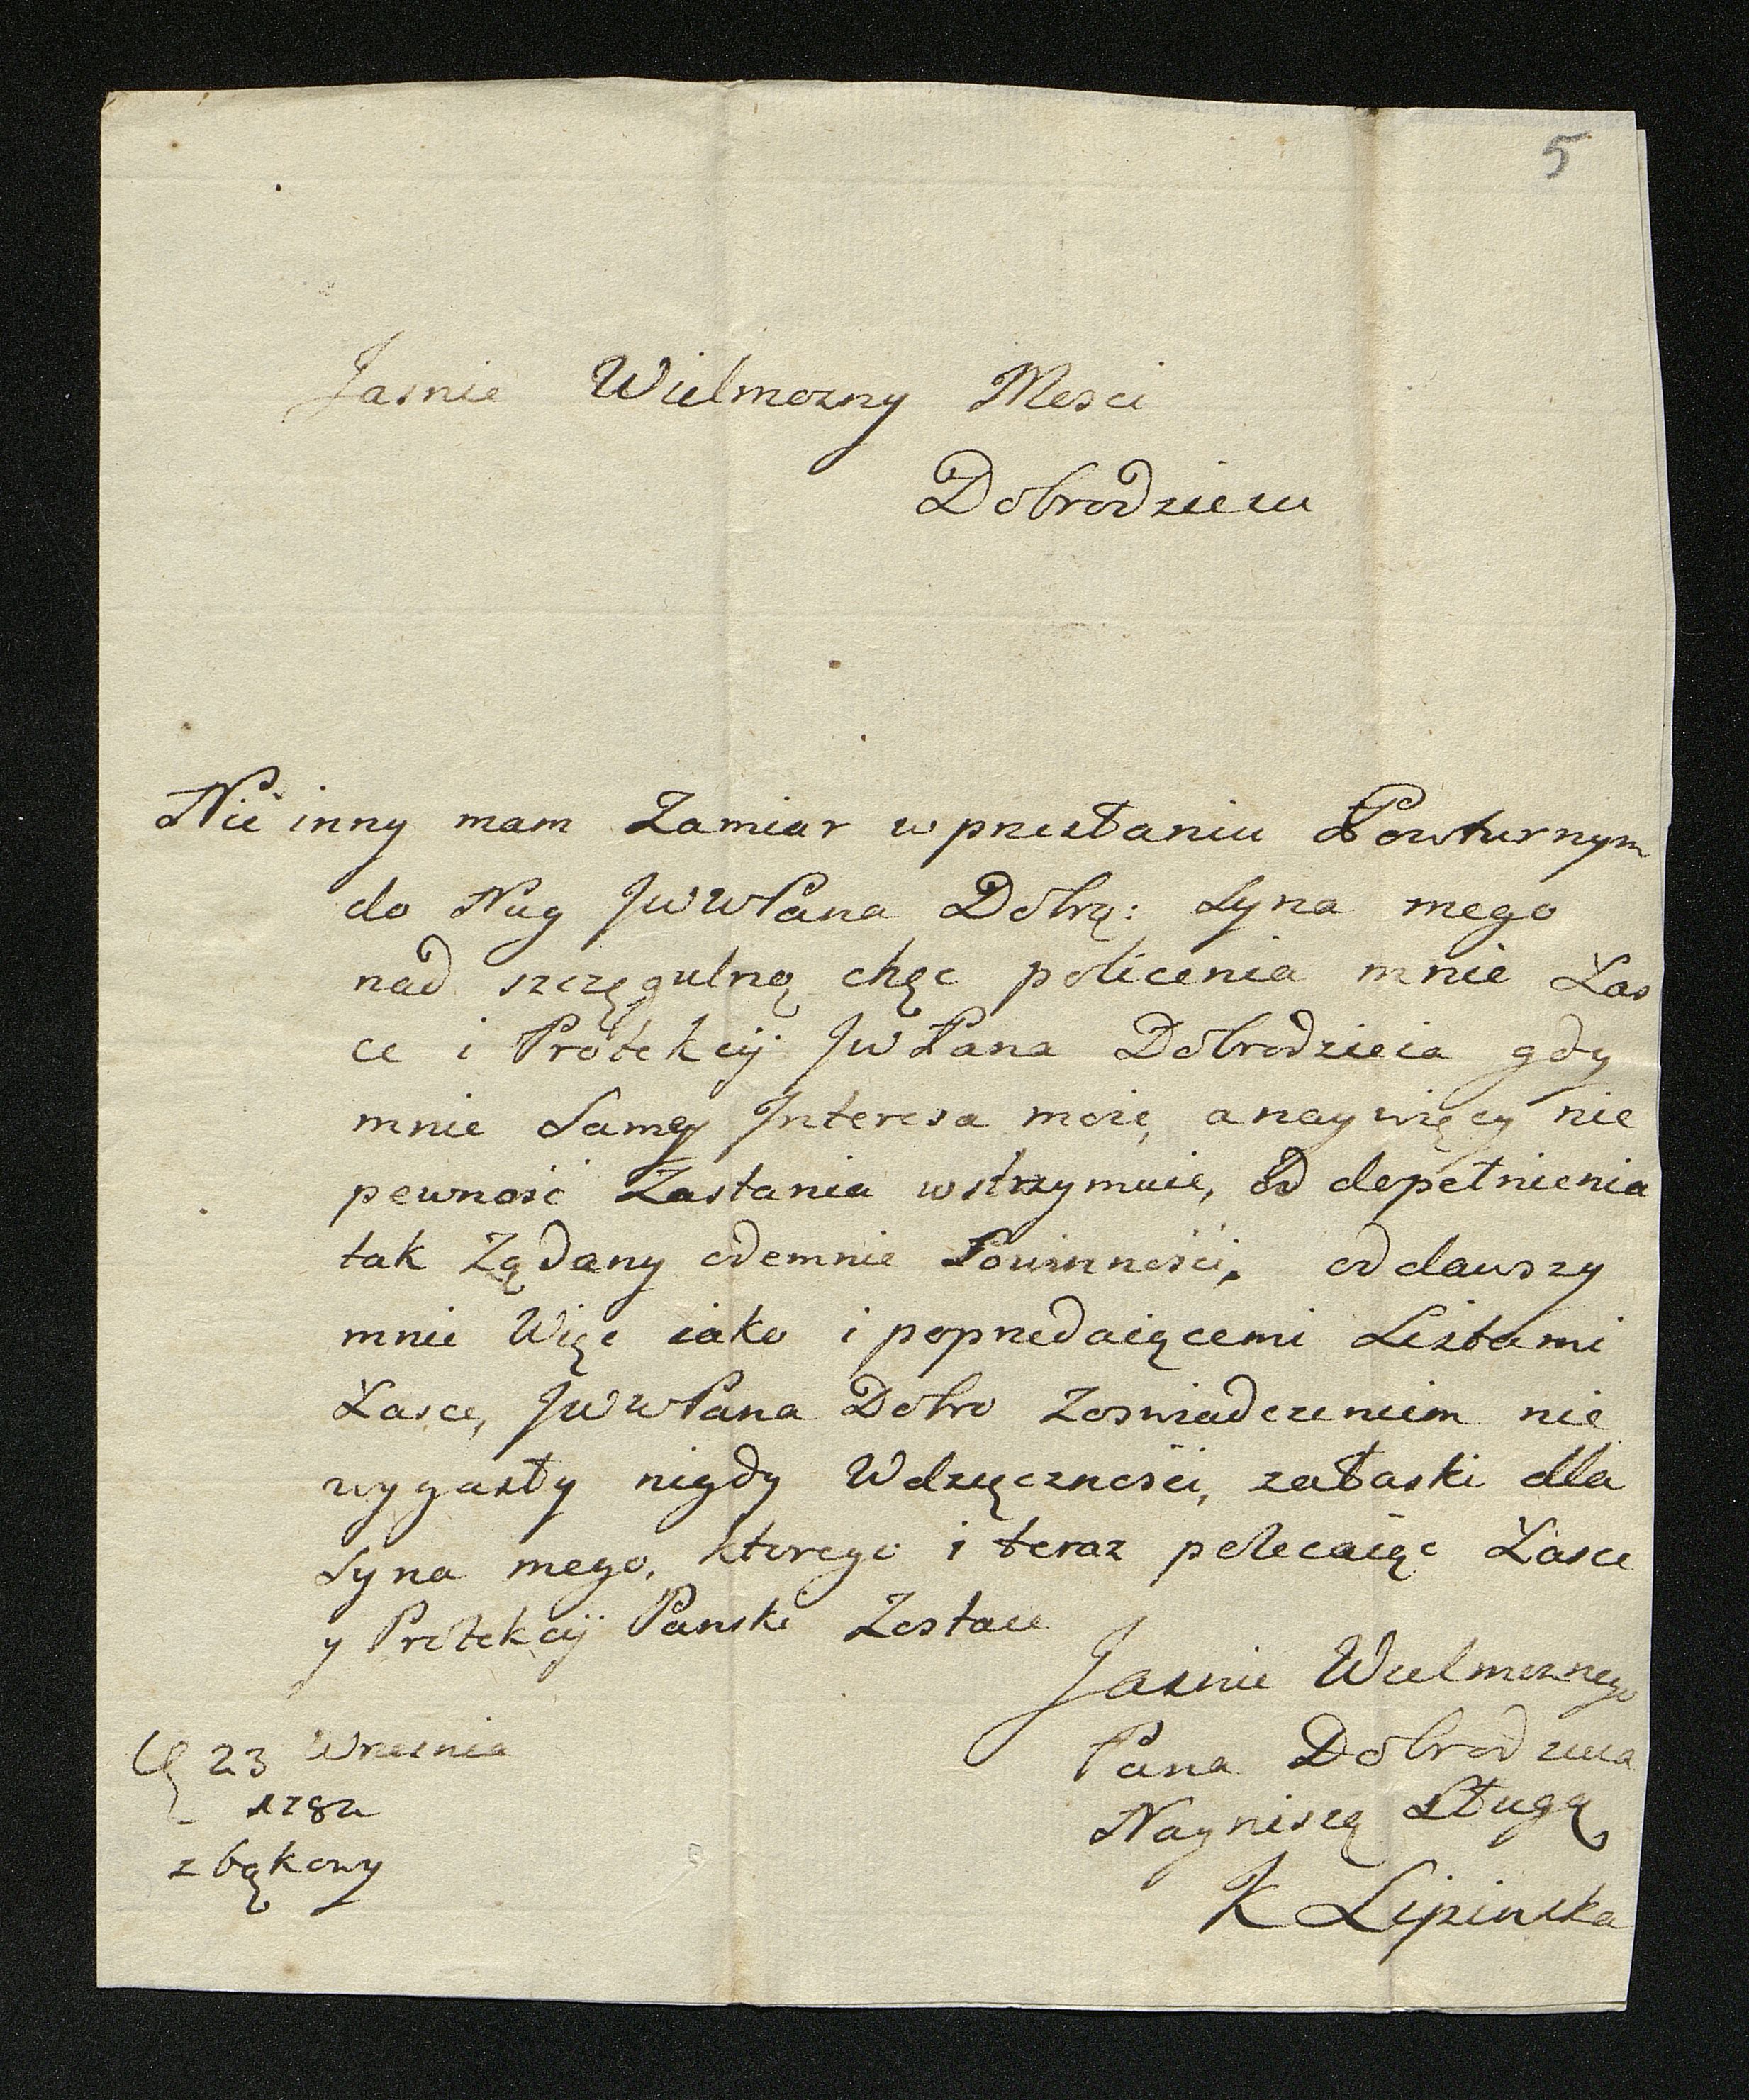 5
Jasnie Wielmozny Mosci
Dobrodzieiu
Nie inny mam Zamiar w przesłaniu Powturnym
do Nug JWWPana Dobrą: Syna mego
nad szczęgulną chęc policenia mnie Łas
ce i Protekcij JWPana Dobrodzieia gdy
mnie Samey Jnteresa moie, a naywięcy nie
pewność Zastania wstrzymuie, od dopełnienia
tak Ządany odemnie Powinności, oddawszy
mnie Więc iako i poprzedaiącemi Listami
Łasce, JWWPana Dobro zoswiadczeniem nie
wygasły nigdy Wdzięczności, za łaski dla
Syna mego, ktorego i teraz polecaiąc Łasce
y Protekcij Panski Zostaie
Jasnie Wielmoznego
Pana Dobrodzieia
Nagniszą Sługą
K Lipinska
23 Wrzesnia
z bąkowy